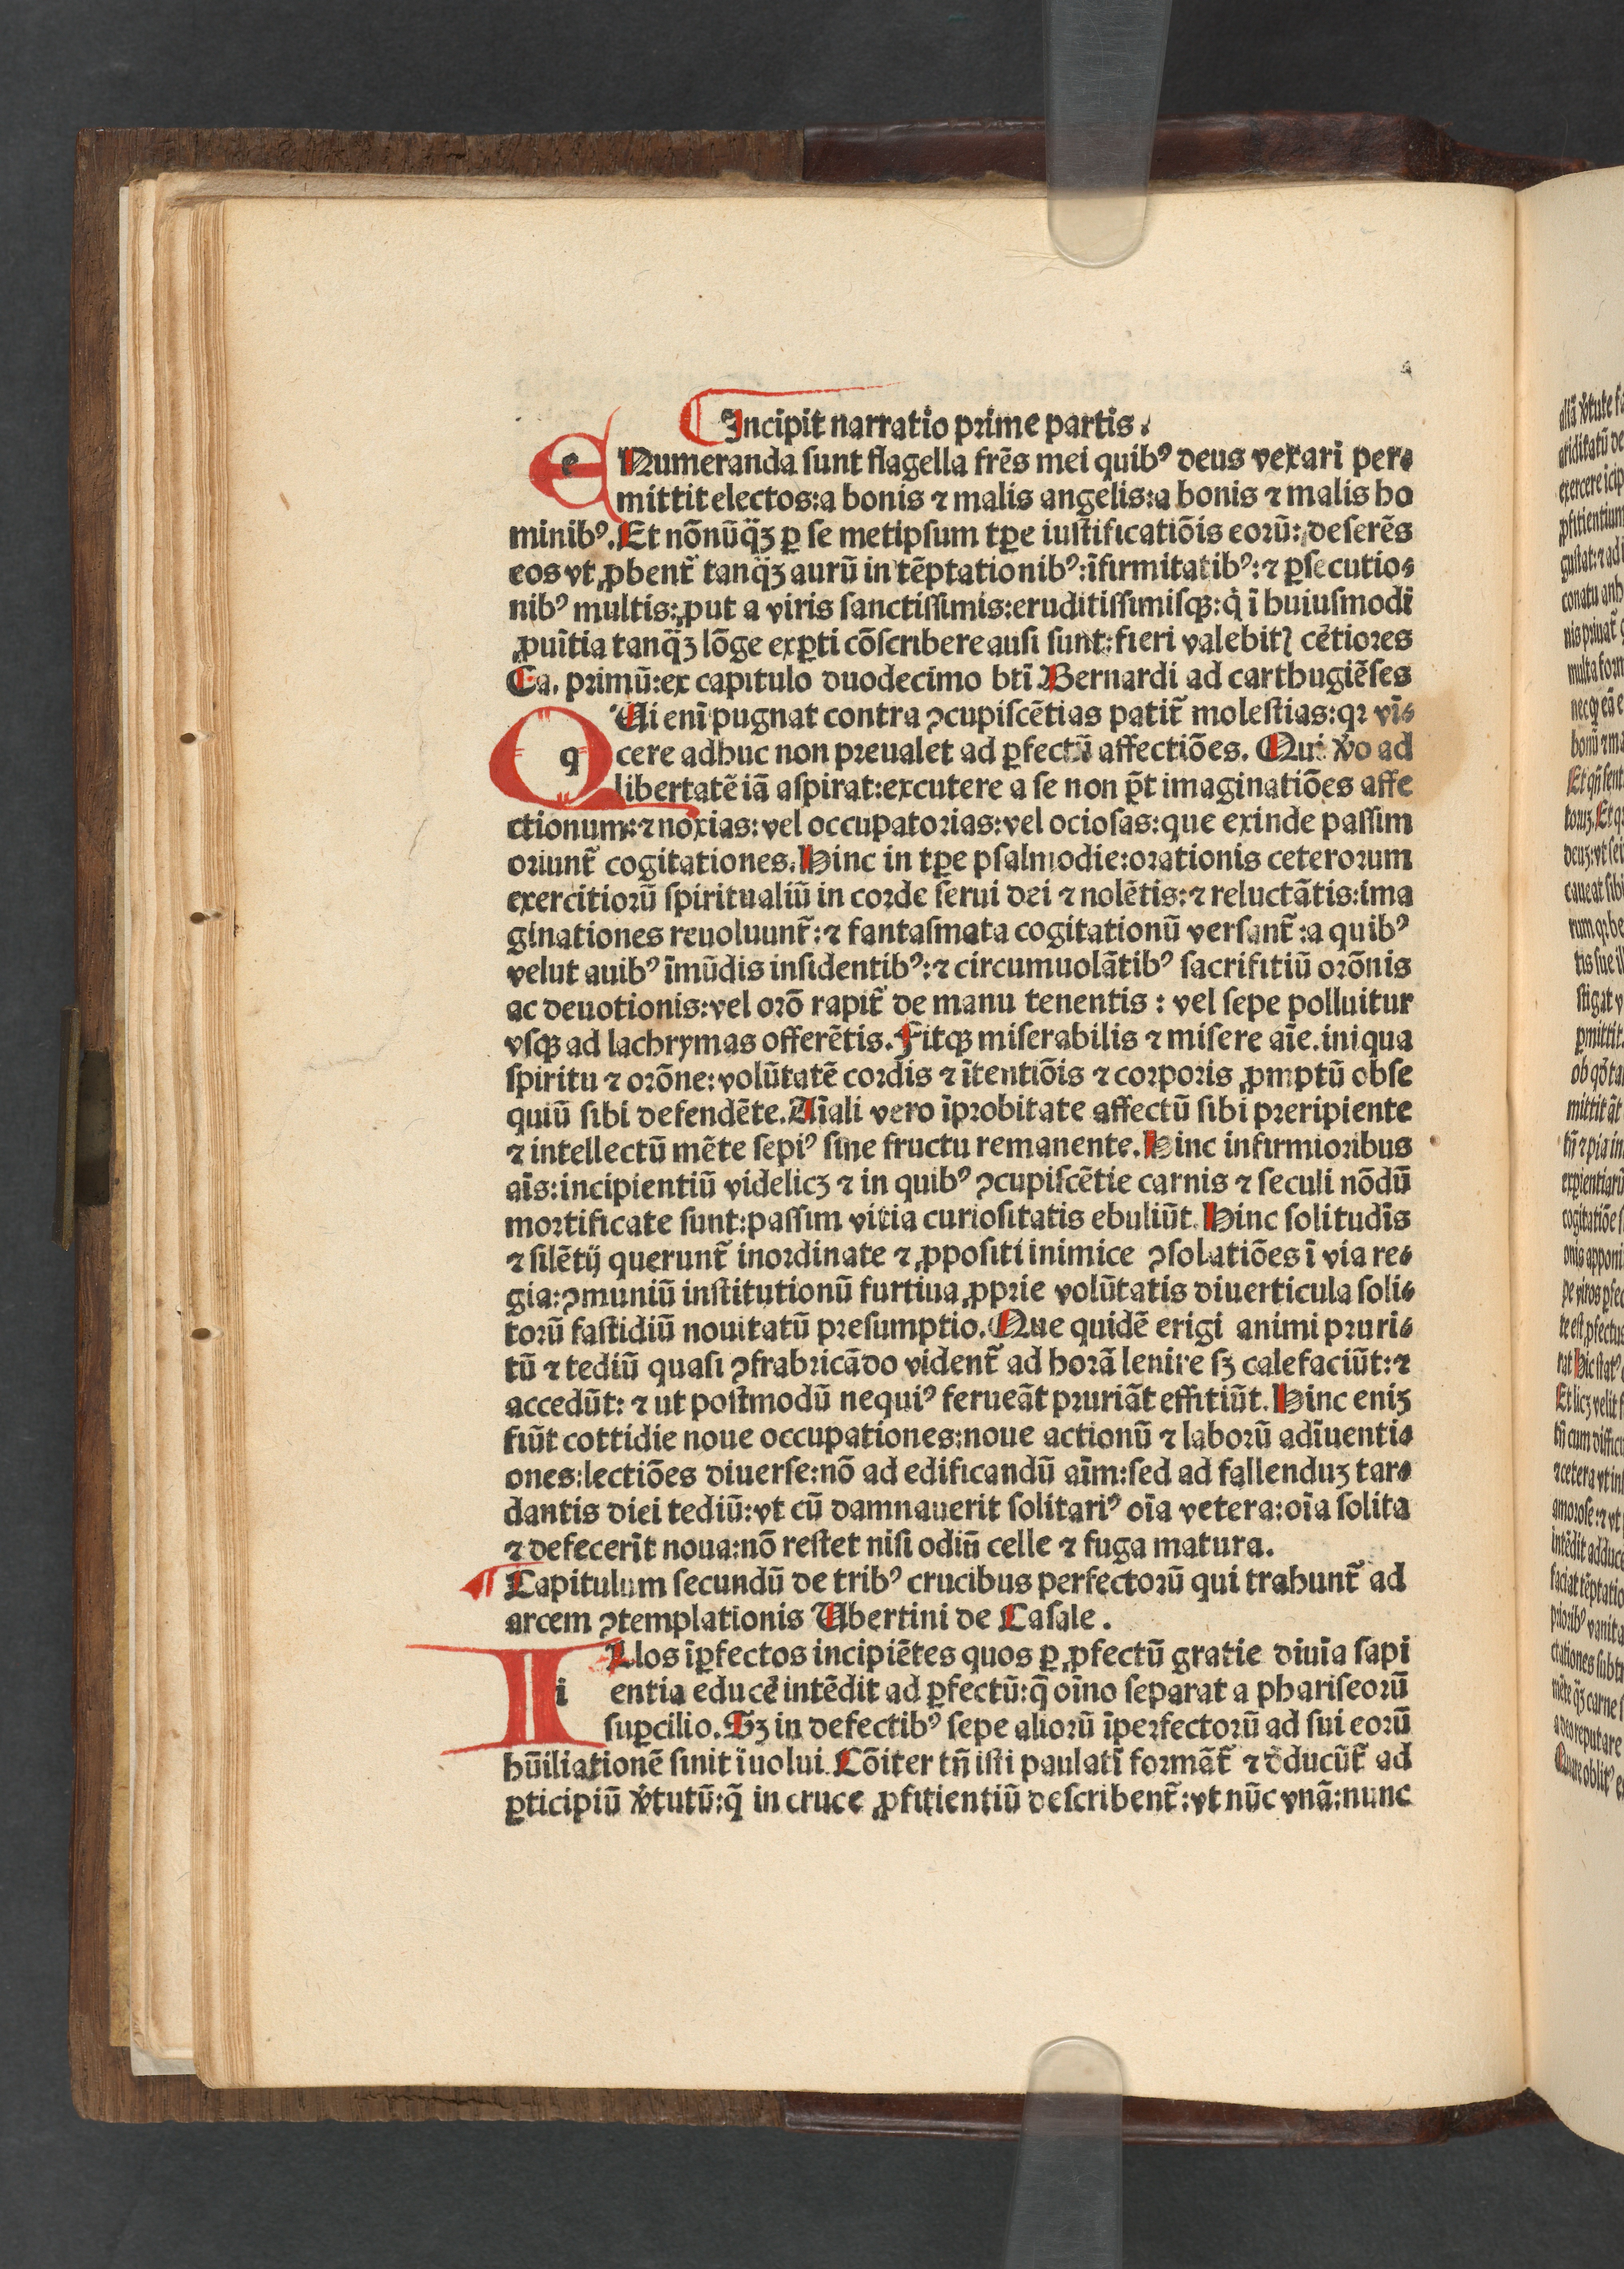 Incipit narratio prime partis.
e Numeranda sunt flagella frēs mei quibꝰ deus vexari per⸗
mittit electos:a bonis ⁊ malis angelis:a bonis ⁊ malis ho
minibꝰ. Et nōnūq̈ꝫ ꝑ se metipsum tꝑe iustificatiōis eorū: deserēs
eos vt ꝓbent̃ tanq̈ꝫ aurū in tēptationibꝰ:īfirmitatibꝰ:⁊ ꝑsecutio⸗
nibꝰ multis:ꝓut a viris sanctissimis:eruditissimisqꝫ:q̇ ī huiusmodi
ꝓuītia tanq̈ꝫ lōge exꝑti cōscribere ausi sunt:fieri valebit᷑ cētiores
Ca. primū:ex capitulo duodecimo btī Bernardi ad carthugiēses
q Ui enī pugnat contra ꝯcupiscētias patit̃ molestias:qꝛ vī⸗
cere adhuc non preualet ad ꝑfectū affectiōes. Qui v̊o ad
libertatē iā aspirat:excutere a se non p̄t imaginatiōes affe
ctionum:⁊ noxias:vel occupatorias:vel ociosas:que exinde passim
oriunt̃ cogitationes. Hinc in tꝑe psalmodie:orationis ceterorum
exercitiorū spiritualiū in corde serui dei ⁊ nolētis:⁊ reluctātis:ima
ginationes reuoluunt̃:⁊ fantasmata cogitationū versant̃:a quibꝰ
velut auibꝰ īmūdis insidentibꝰ:⁊ circumuolātibꝰ sacrifitiū orōnis
ac deuotionis:vel orō rapit̃ de manu tenentis : vel sepe polluitur
vsqꝫ ad lachrymas offerētis. Fitqꝫ miserabilis ⁊ misere aīe. iniqua
spiritu ⁊ orōne:volūtatē cordis ⁊ ītentiōis ⁊ corporis ꝓmptū obse
quiū sibi defendēte. Aīali vero īprobitate affectū sibi preripiente
⁊ intellectū mēte sepiꝰ sine fructu remanente. Hinc infirmioribus
aīs:incipientiū videlicꝫ ⁊ in quibꝰ ꝯcupiscētie carnis ⁊ seculi nōdū
mortificate sunt:passim vitia curiositatis ebuliūt. Hinc solitudīs
⁊ silētij querunt̃ inordinate ⁊ ꝓpositi inimice ꝯsolatiōes ī via re⸗
gia:ꝯmuniū institutionū furtiua ꝓprie volūtatis diuerticula soli⸗
torū fastidiū nouitatū presumptio. Que quidē erigi animi pruri⸗
tū ⁊ tediū quasi ꝯfrabricādo vident̃ ad horā lenire sꝫ calefaciūt:⁊
accedūt: ⁊ ut postmodū nequiꝰ ferueāt pruriāt effitiūt. Hinc eniꝫ
fiūt cottidie noue occupationes:noue actionū ⁊ laborū adīuenti⸗
ones:lectiōes diuerse:nō ad edificandū aīm:sed ad fallenduꝫ tar⸗
dantis diei tediū:vt cū damnauerit solitariꝰ oīa vetera:oīa solita
⁊ defecerīt noua:nō restet nisi odiū celle ⁊ fuga matura.
Capitulum secundū de tribꝰ crucibus perfectorū qui trahunt̃ ad
arcem ꝯtemplationis Ubertini de Casale.
i Llos īꝑfectos incipiētes quos ꝑ ꝓfectū gratie diuīa sapi
entia educē intēdit ad ꝑfectū:q̄ oīno separat a phariseorū
suꝑcilio. Sꝫ in defectibꝰ sepe aliorū īperfectorū ad sui eorū
hūiliationē sinit īuolui. Cōiter tñ isti paulatī formāt̃ ⁊ ꝺ̄ducūt̃ ad
ꝑticipiū v̊tutū:q̄ in cruce ꝓfitientiū describent̃:vt nūc vnā:nunc